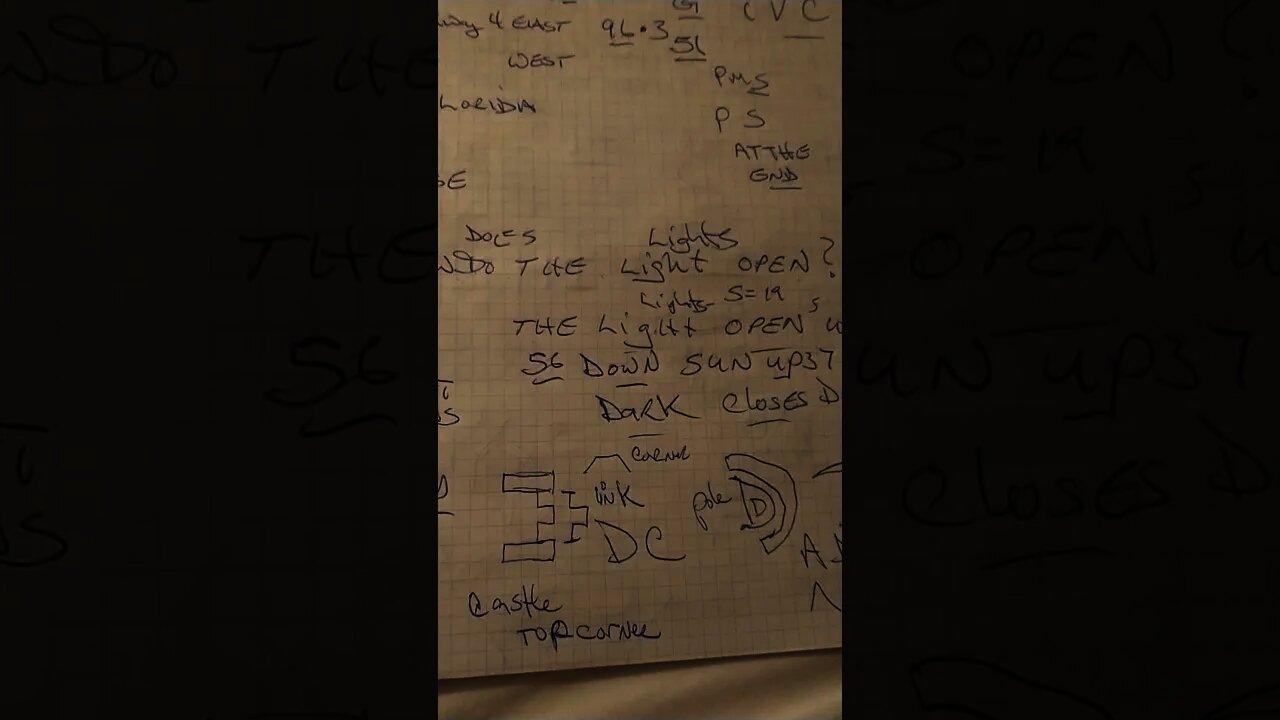 4 EAST 96.3
WEST 56
PMS
FLORIDA P S
AT THE
END
DOES Lights
DO THE Light OPEN?
Lights S=19 s
THE Light OPEN
56 DOWN SUN UP 37
DARK Closes D
corner
link pole D
DC
castle
TOP corner